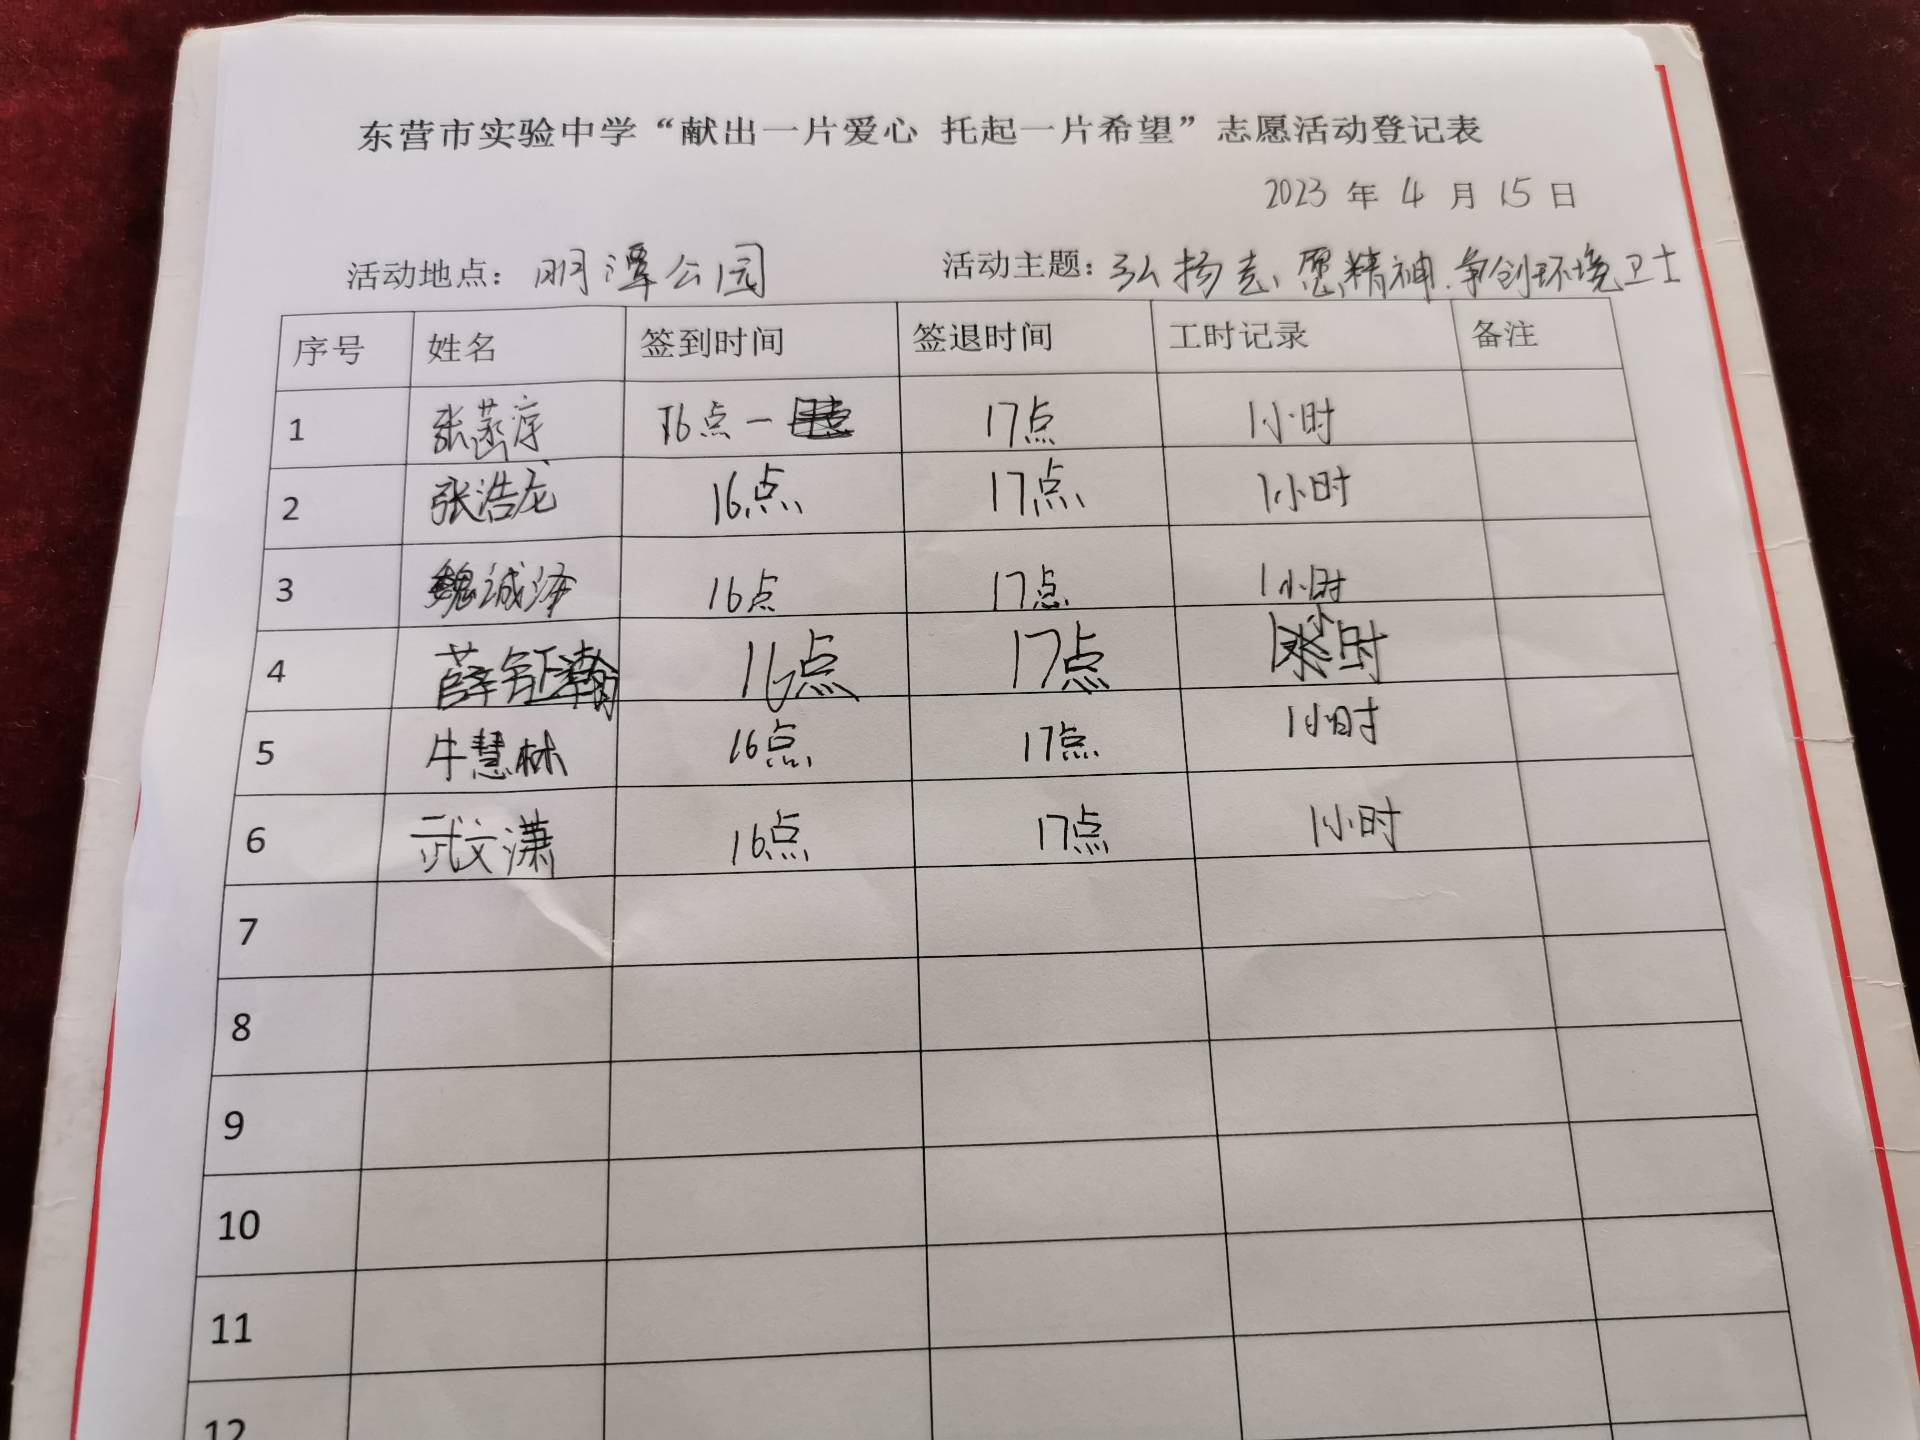 东营市实验中学“献出一片爱心 托起一片希望”志愿活动登记表
2023 年 4 月 15 日
活动地点：明潭公园 活动主题：弘扬志愿精神.争创环境卫士
序号 姓名 签到时间 签退时间 工时记录 备注
1 张 16点一 17点 1小时
2 张浩龙 16点 17点 1小时
3 魏诚泽 16点 17点 1小时
4 薛钰瀚 16点 17点 1小时
5 牛慧林 16点 17点 1小时
6 武文潇 16点 17点 1小时
7
8
9
10
11
12